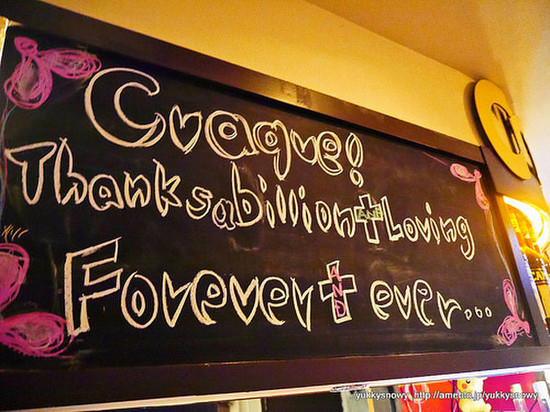 Cvague!
Thanks a billion AND Loving
Forever AND ever...
yukkysnowy http://ameblo.jp/yukkysnowy